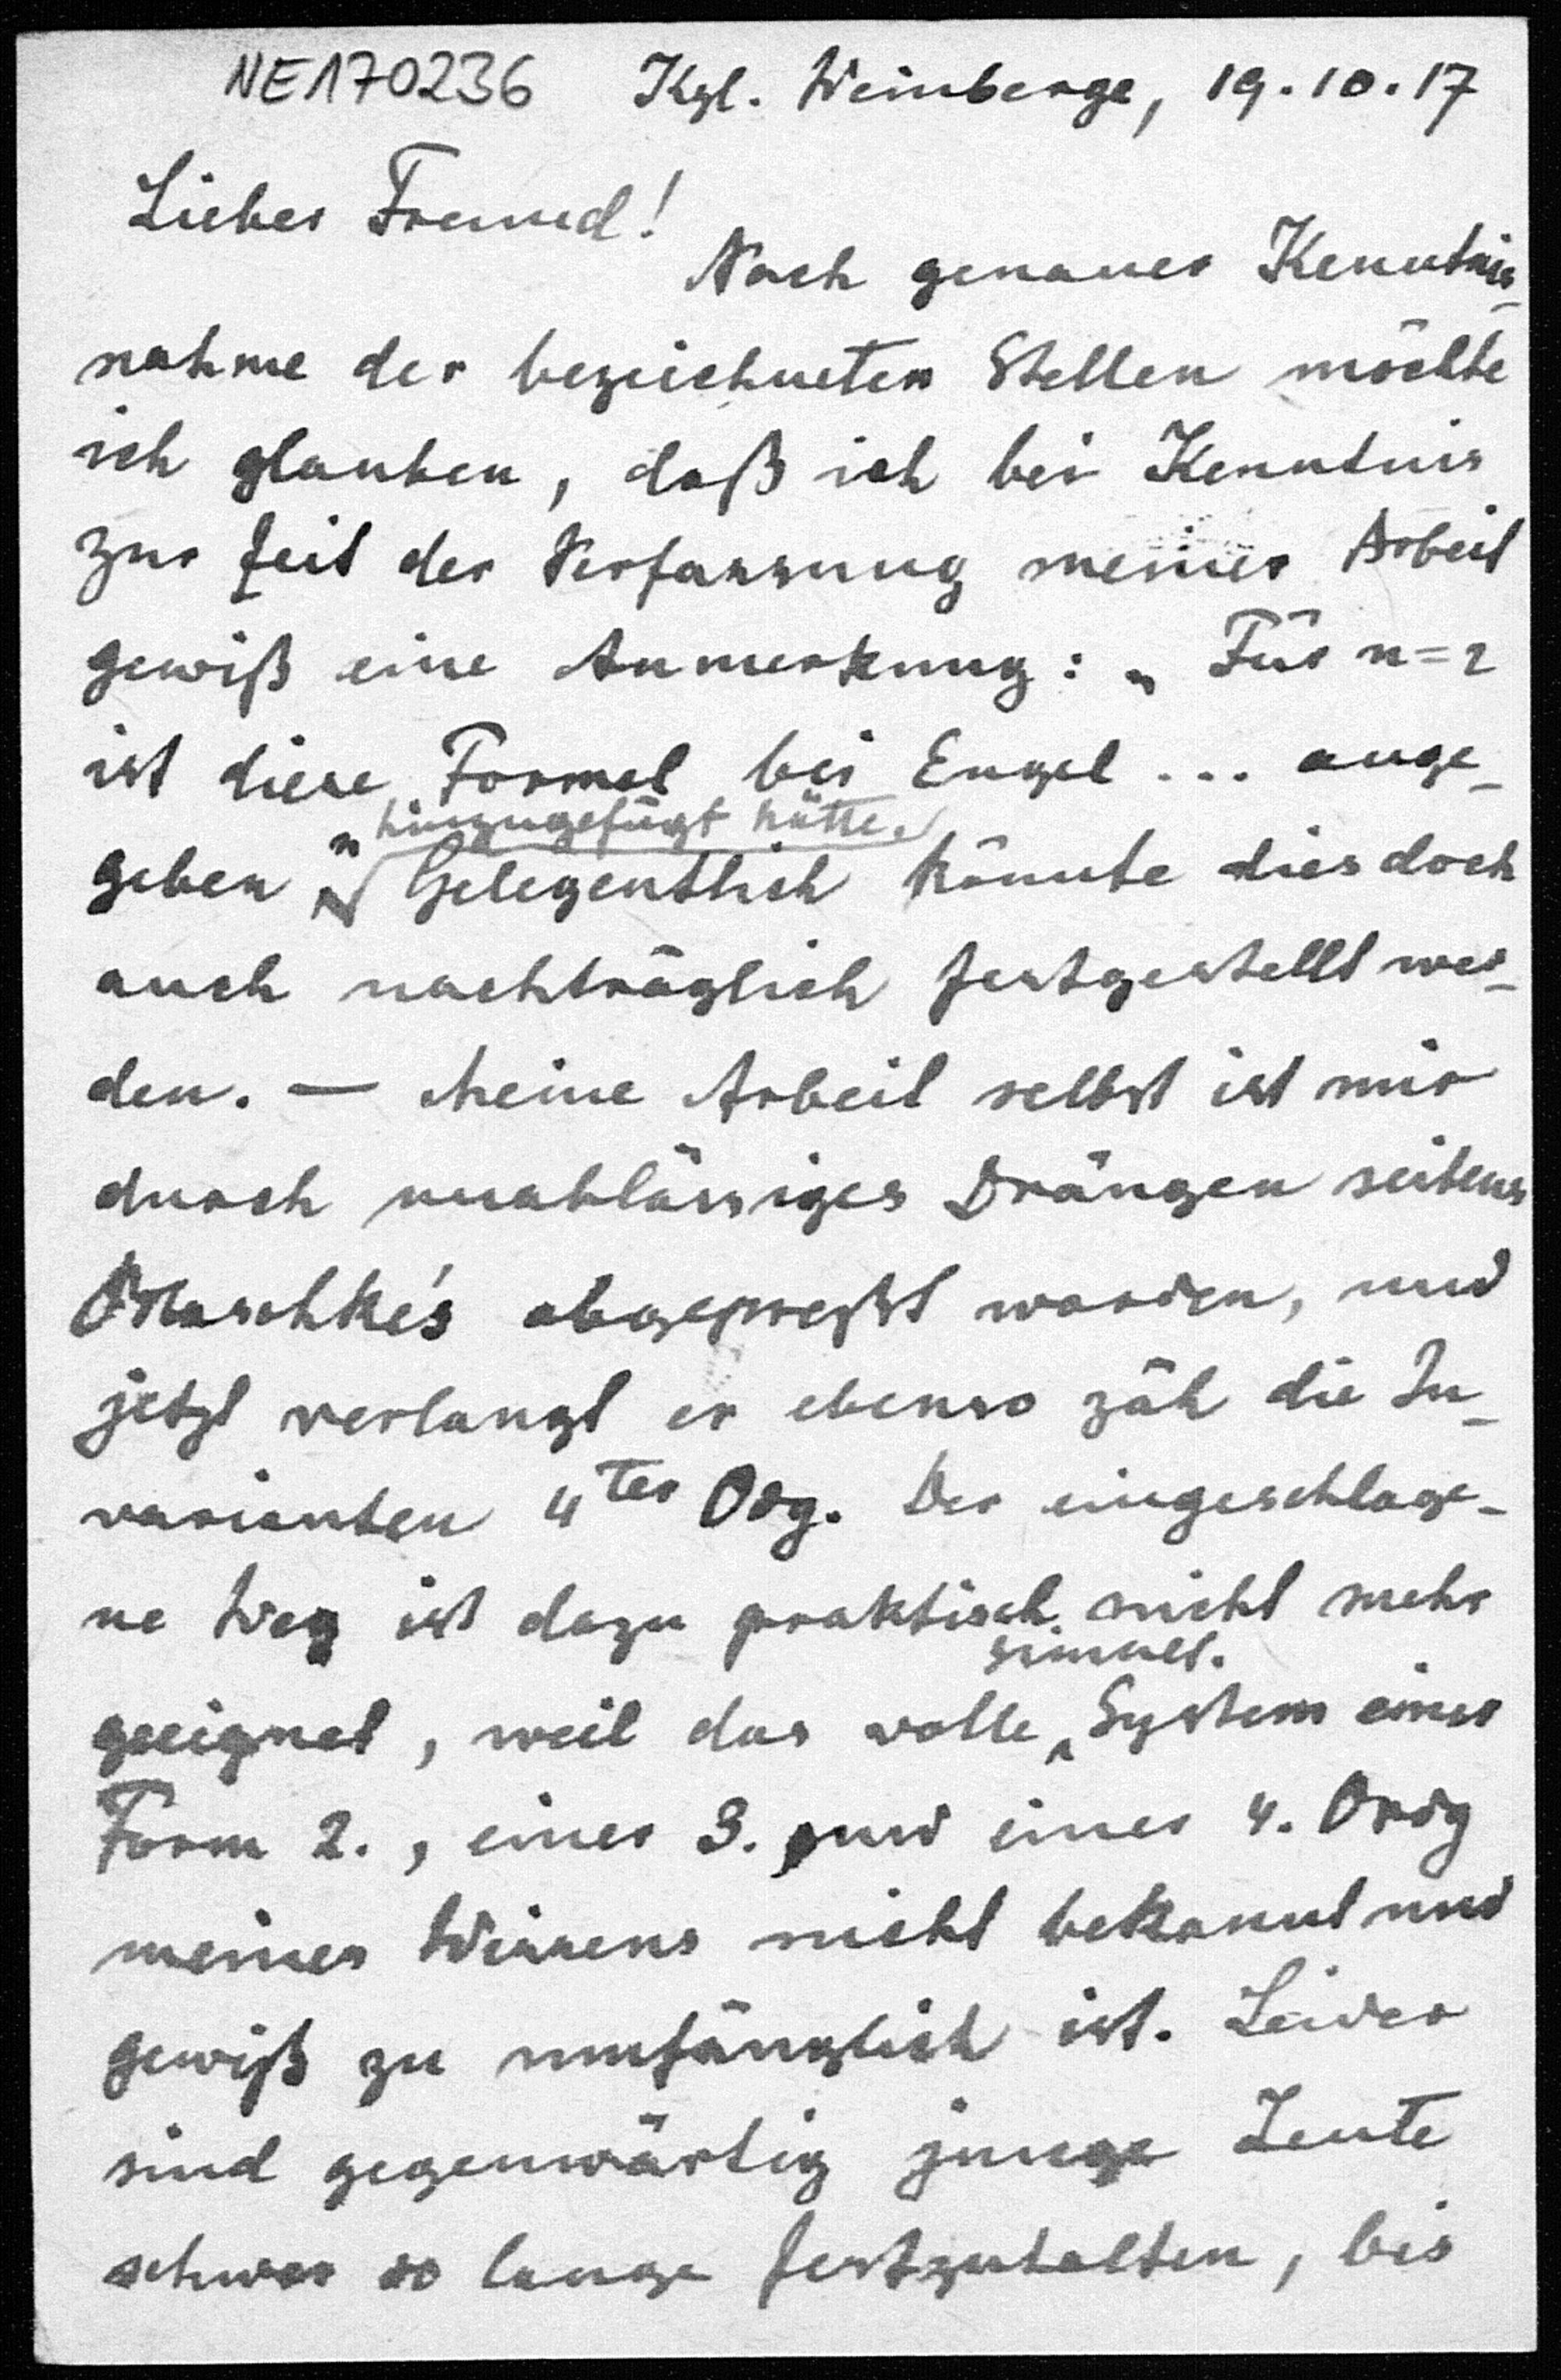 NE170236 Kgl. Weinberge, 19.10.17
Lieber Freund!
Nach genauer Kenntnis-
nahme der bezeichneten Stellen möchte
ich glauben, daß ich bei Kenntnis
zur Zeit der Verfassung meiner Arbeit
gewiß eine Anmerkung: „Für n=2
ist diese Formel bei Engel ... ange-
hinzugefügt hätte.
geben" Gelegentlich könnte dies doch
auch nachträglich festgestellt wer-
den. — Meine Arbeit selbst ist mir
durch unablässiges Drängen seitens
abgepreßt worden, und
jetzt verlangt er ebenso zäh die In-
varianten 4ter Odg. Der eingeschlage-
ne Weg ist dazu praktisch nicht mehr
simult.
geeignet, weil das volle System einer
Form 2., einer 3. und einer 4. Ordg
meines Wissens nicht bekannt und
gewiß zu umfänglich ist. Leider
sind gegenwärtig junge Leute
schwer so lange festzuhalten, bis